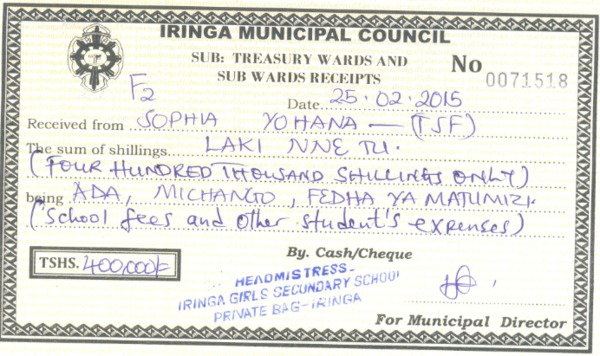 IRINGA MUNICIPAL COUNCIL
SUB: TREASURY WARDS AND
SUB WARDS RECEIPTS
No 0071518
F2
Date 25.02.2015
Received from SOPHIA YOHANA — (TSF)
The sum of shillings LAKI NNE TU.
(FOUR HUNDRED THOUSAND SHILLINGS ONLY)
being ADA, MICHANGO, FEDHA YA MATUMIZI.
(School fees and other student's expenses)
By. Cash/Cheque
TSHS. 400,000/=
HEADMISTRESS-
IRINGA GIRLS SECUNDARY SCHOOL
PRIVATE BAG-IRINGA
For Municipal Director